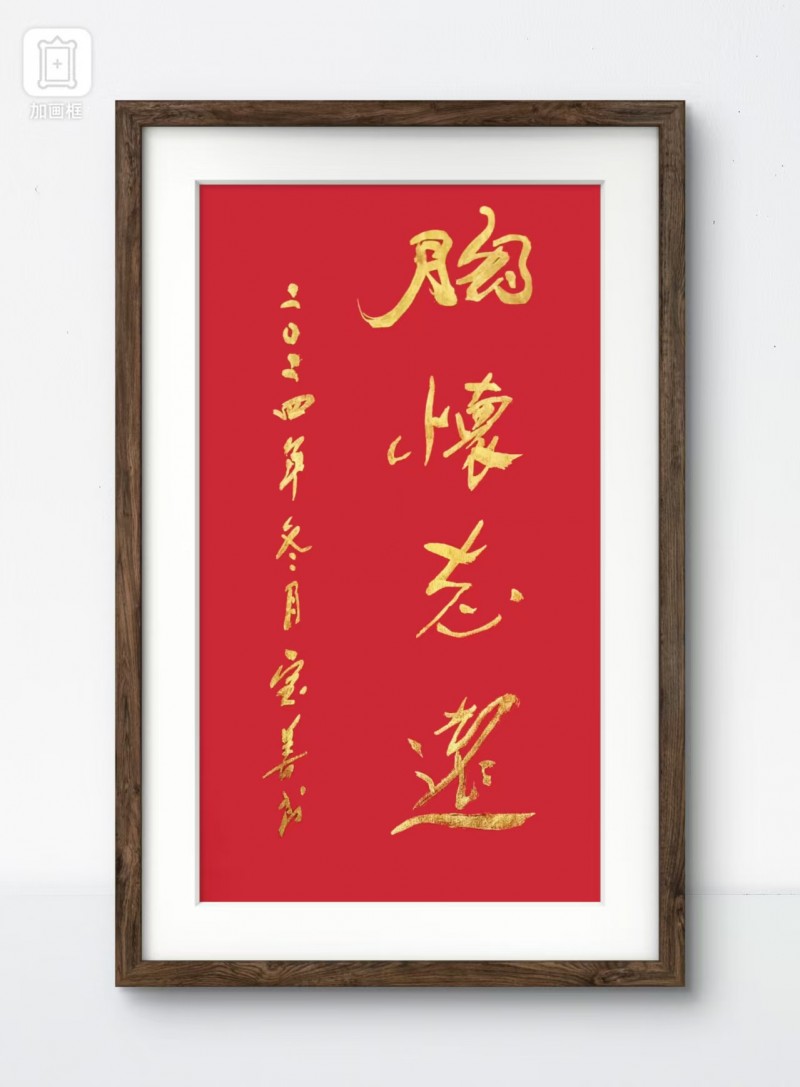 加画框
胸懷志遠
二〇二四年冬月宝善书